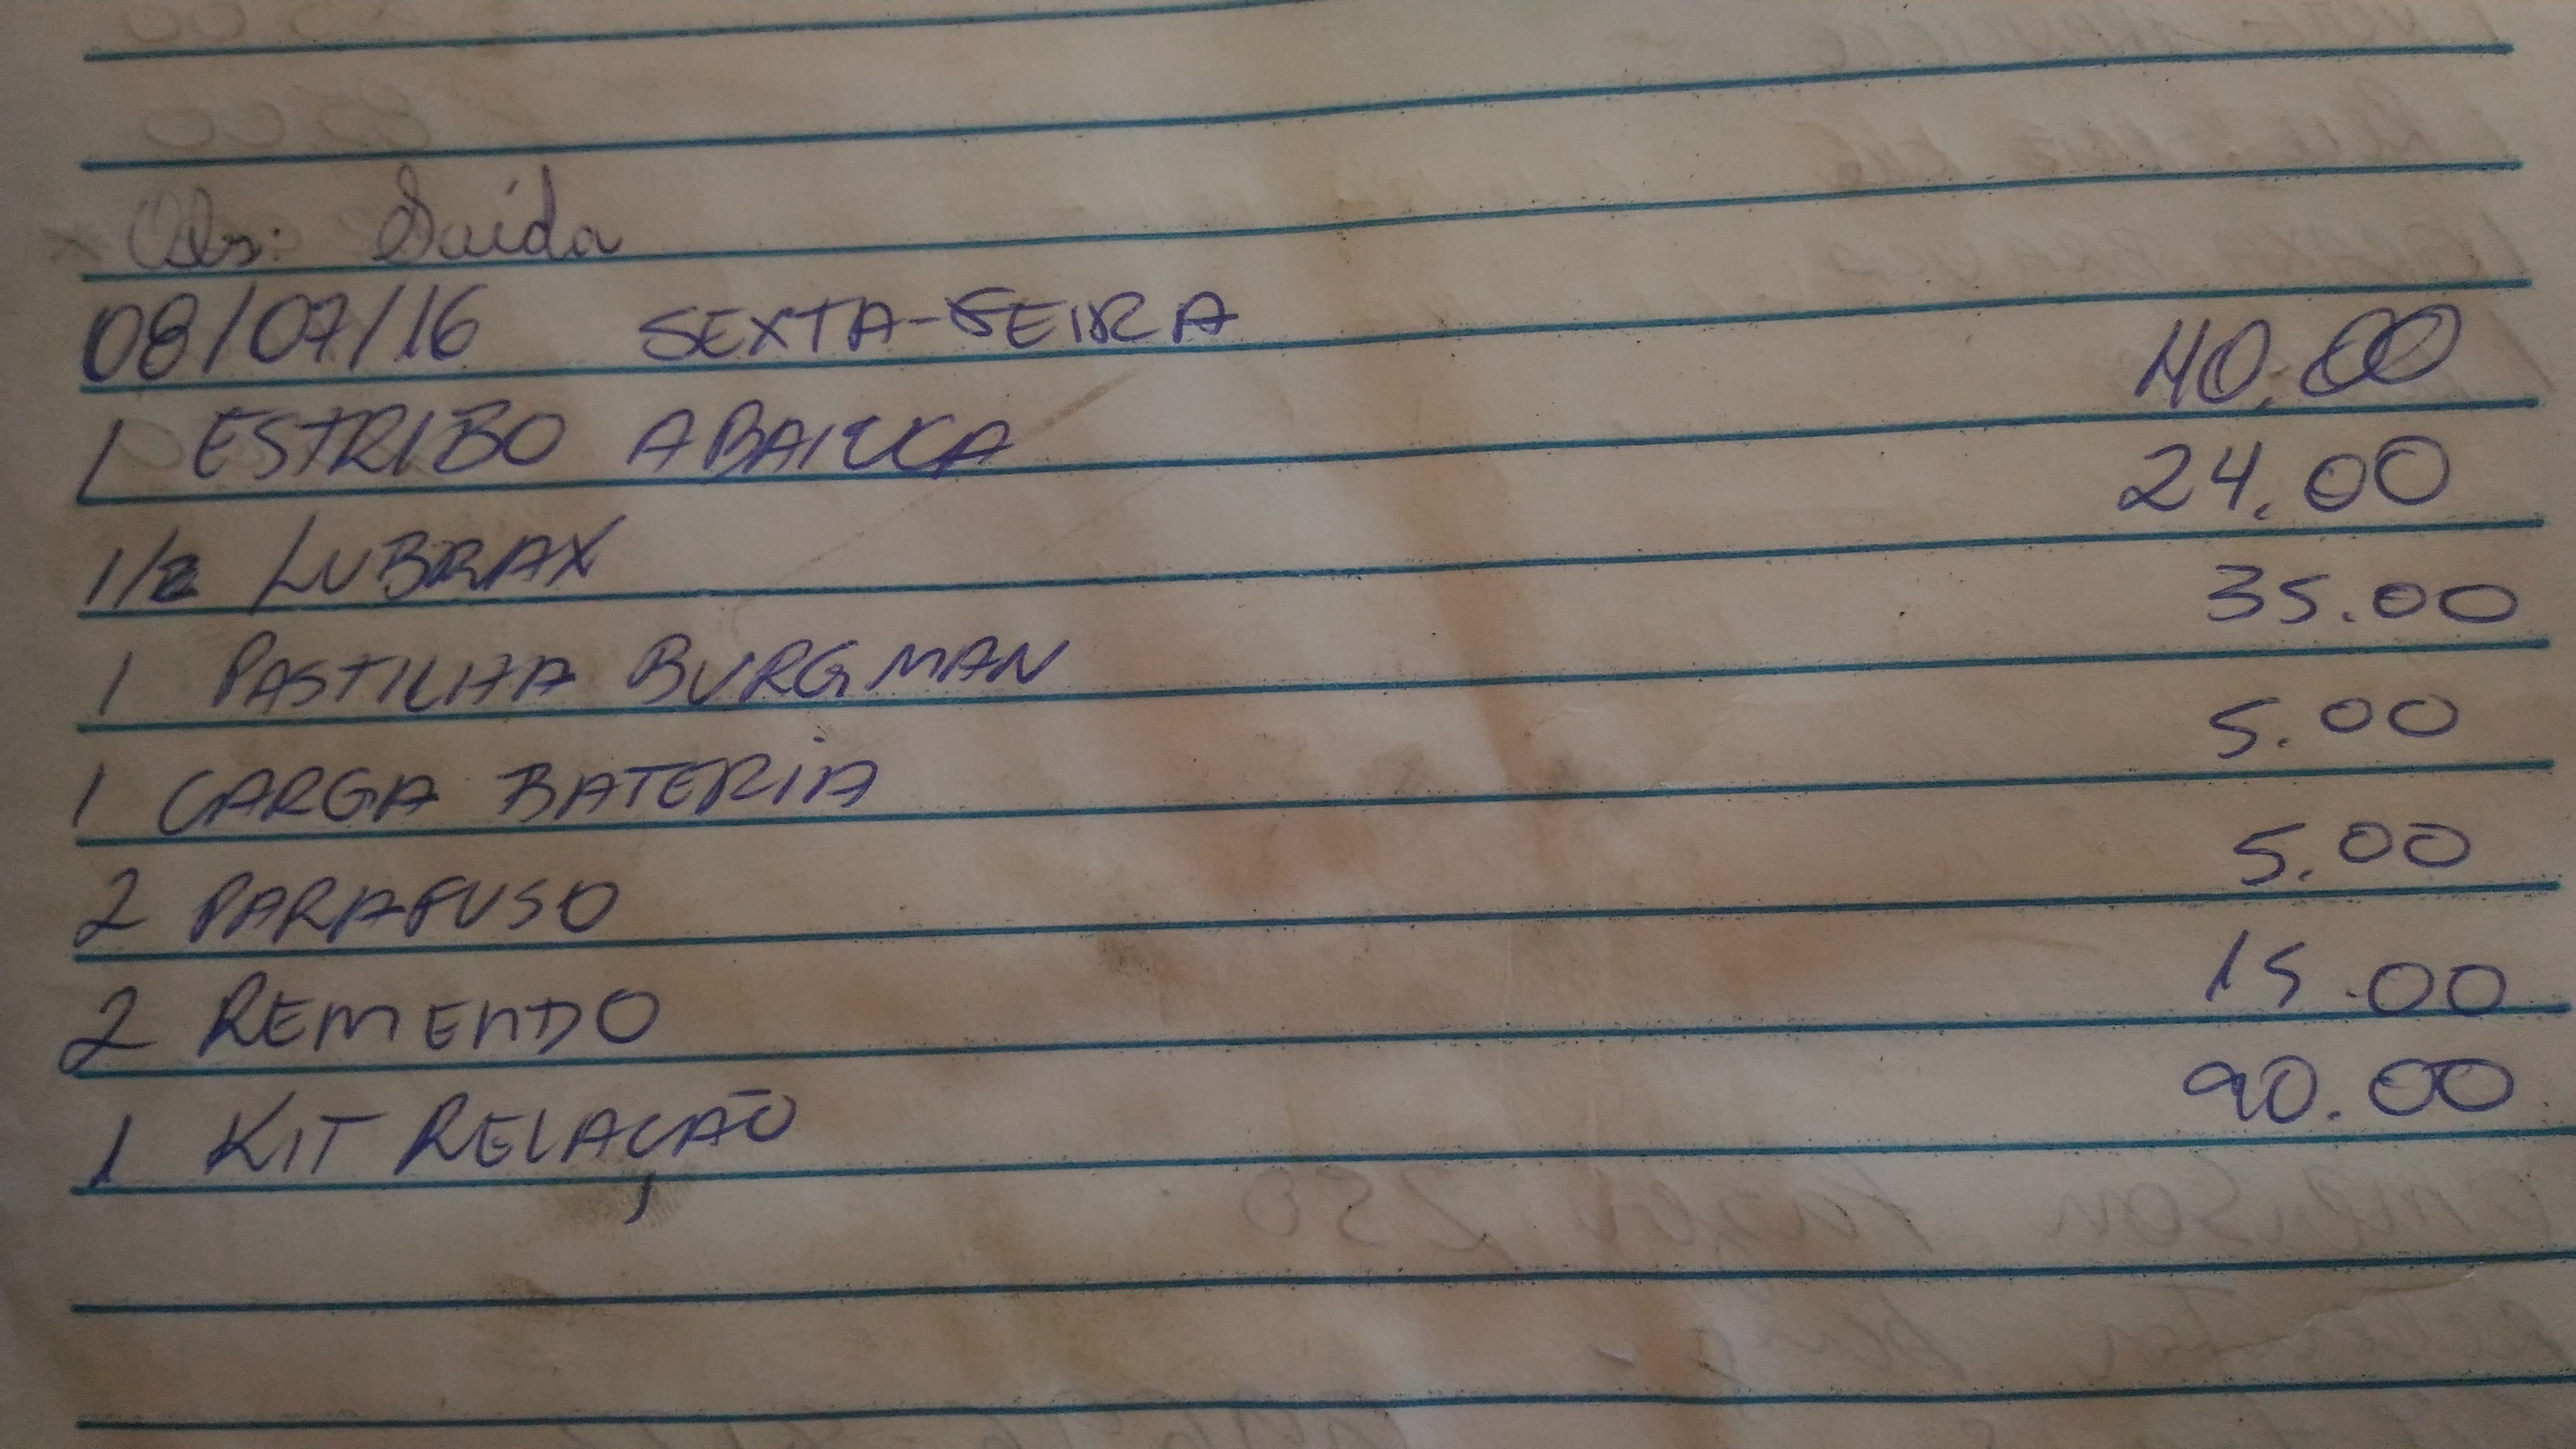 Obs: Saída
08/07/16 SEXTA-FEIRA
1 ESTRIBO 40.00
1/2 LUBRAX 24.00
1 PASTILHA BURGMAN 35.00
1 CARGA BATERIA 5.00
2 PARAFUSO 5.00
2 REMENDO 15.00
1 KIT RELAÇÃO 90.00